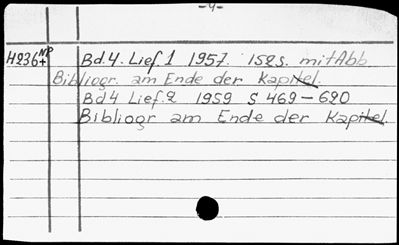 -4-
H236+ NP Bd.4. Lief.1 1957. 152s. mit Abb
Bibliogr. am Ende der Kapitel.
Bd4 Lief.2 1959 S 469-620
Bibliogr am Ende der Kapitel.